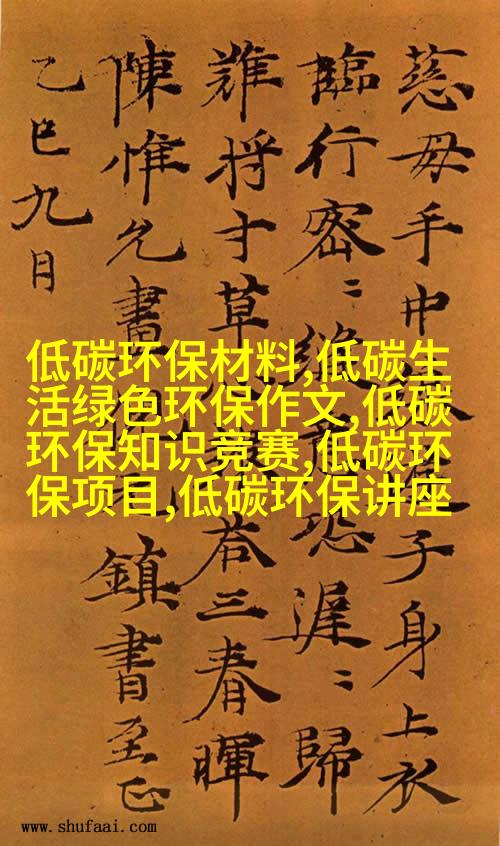 慈母手中子身上衣
臨行密〻縫意恐遲〻歸
難将寸草荅三春暉
陳惟允畫鎮書至正
乙巳九月
低碳环保材料,低碳生
活绿色环保作文,低碳
环保知识竞赛,低碳环
保项目,低碳环保讲座
www.shufaai.com